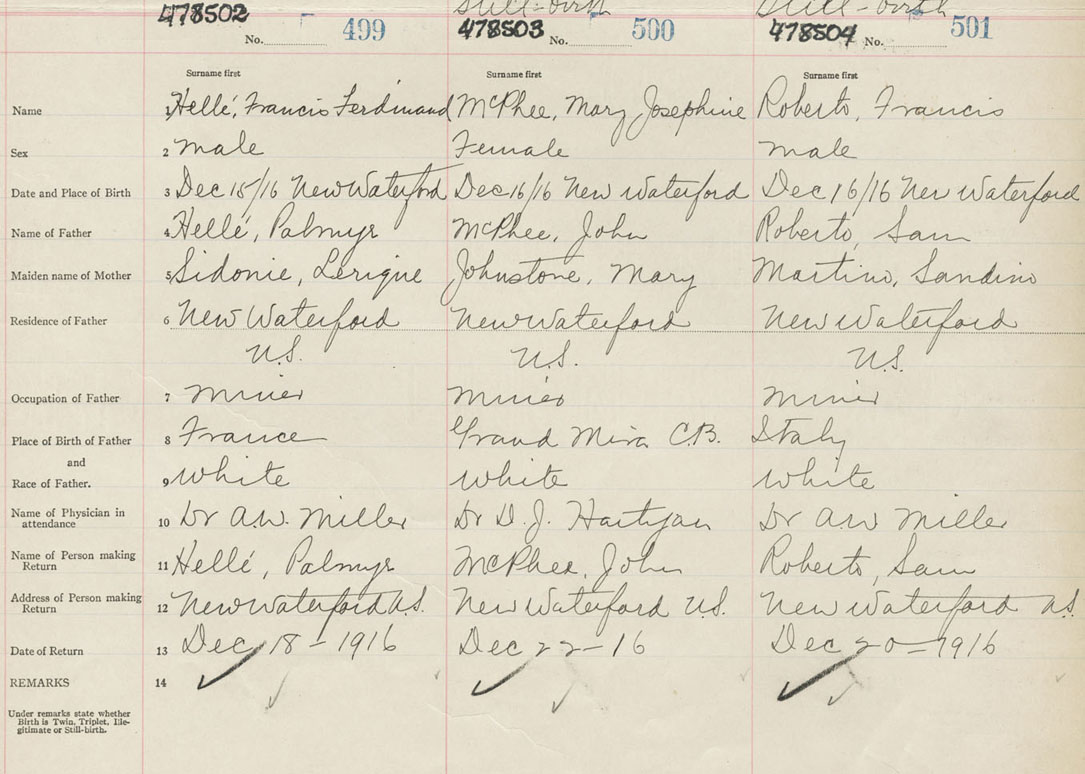 Still-birth Still-birth
478502 499 478503 500 478504 501
No. No. No.
Surname first Surname first Surname first
Name 1 Hellé, Francis Ferdinand McPhee, Mary Josephine Roberto, Francis
Sex 2 male Female male
Date and Place of Birth 3 Dec 15/16 New Waterford Dec 16/16 New Waterford Dec 16/16 New Waterford
Name of Father 4 Hellé, Palmyr McPhee, John Roberto, Sam
Maiden name of Mother 5 Sidonie, Lerique Johnstone, Mary Martino, Sandino
Residence of Father 6 New Waterford New Waterford New Waterford
N.S. N.S. N.S.
Occupation of Father 7 miner miner miner
Place of Birth of Father 8 France Grand Mira C.B. Italy
and
Race of Father. 9 white white white
Name of Physician in attendance 10 Dr A.W. Miller Dr D. J. Hartigan Dr A.W Miller
Name of Person making Return 11 Hellé, Palmyr McPhee, John Roberto, Sam
Address of Person making Return 12 New Waterford N.S. New Waterford N.S. New Waterford N.S.
Date of Return 13 Dec 18-1916 Dec 22-16 Dec 20-1916
REMARKS 14
Under remarks state whether
Birth is Twin, Triplet, Ille-
gitimate or Still-birth.